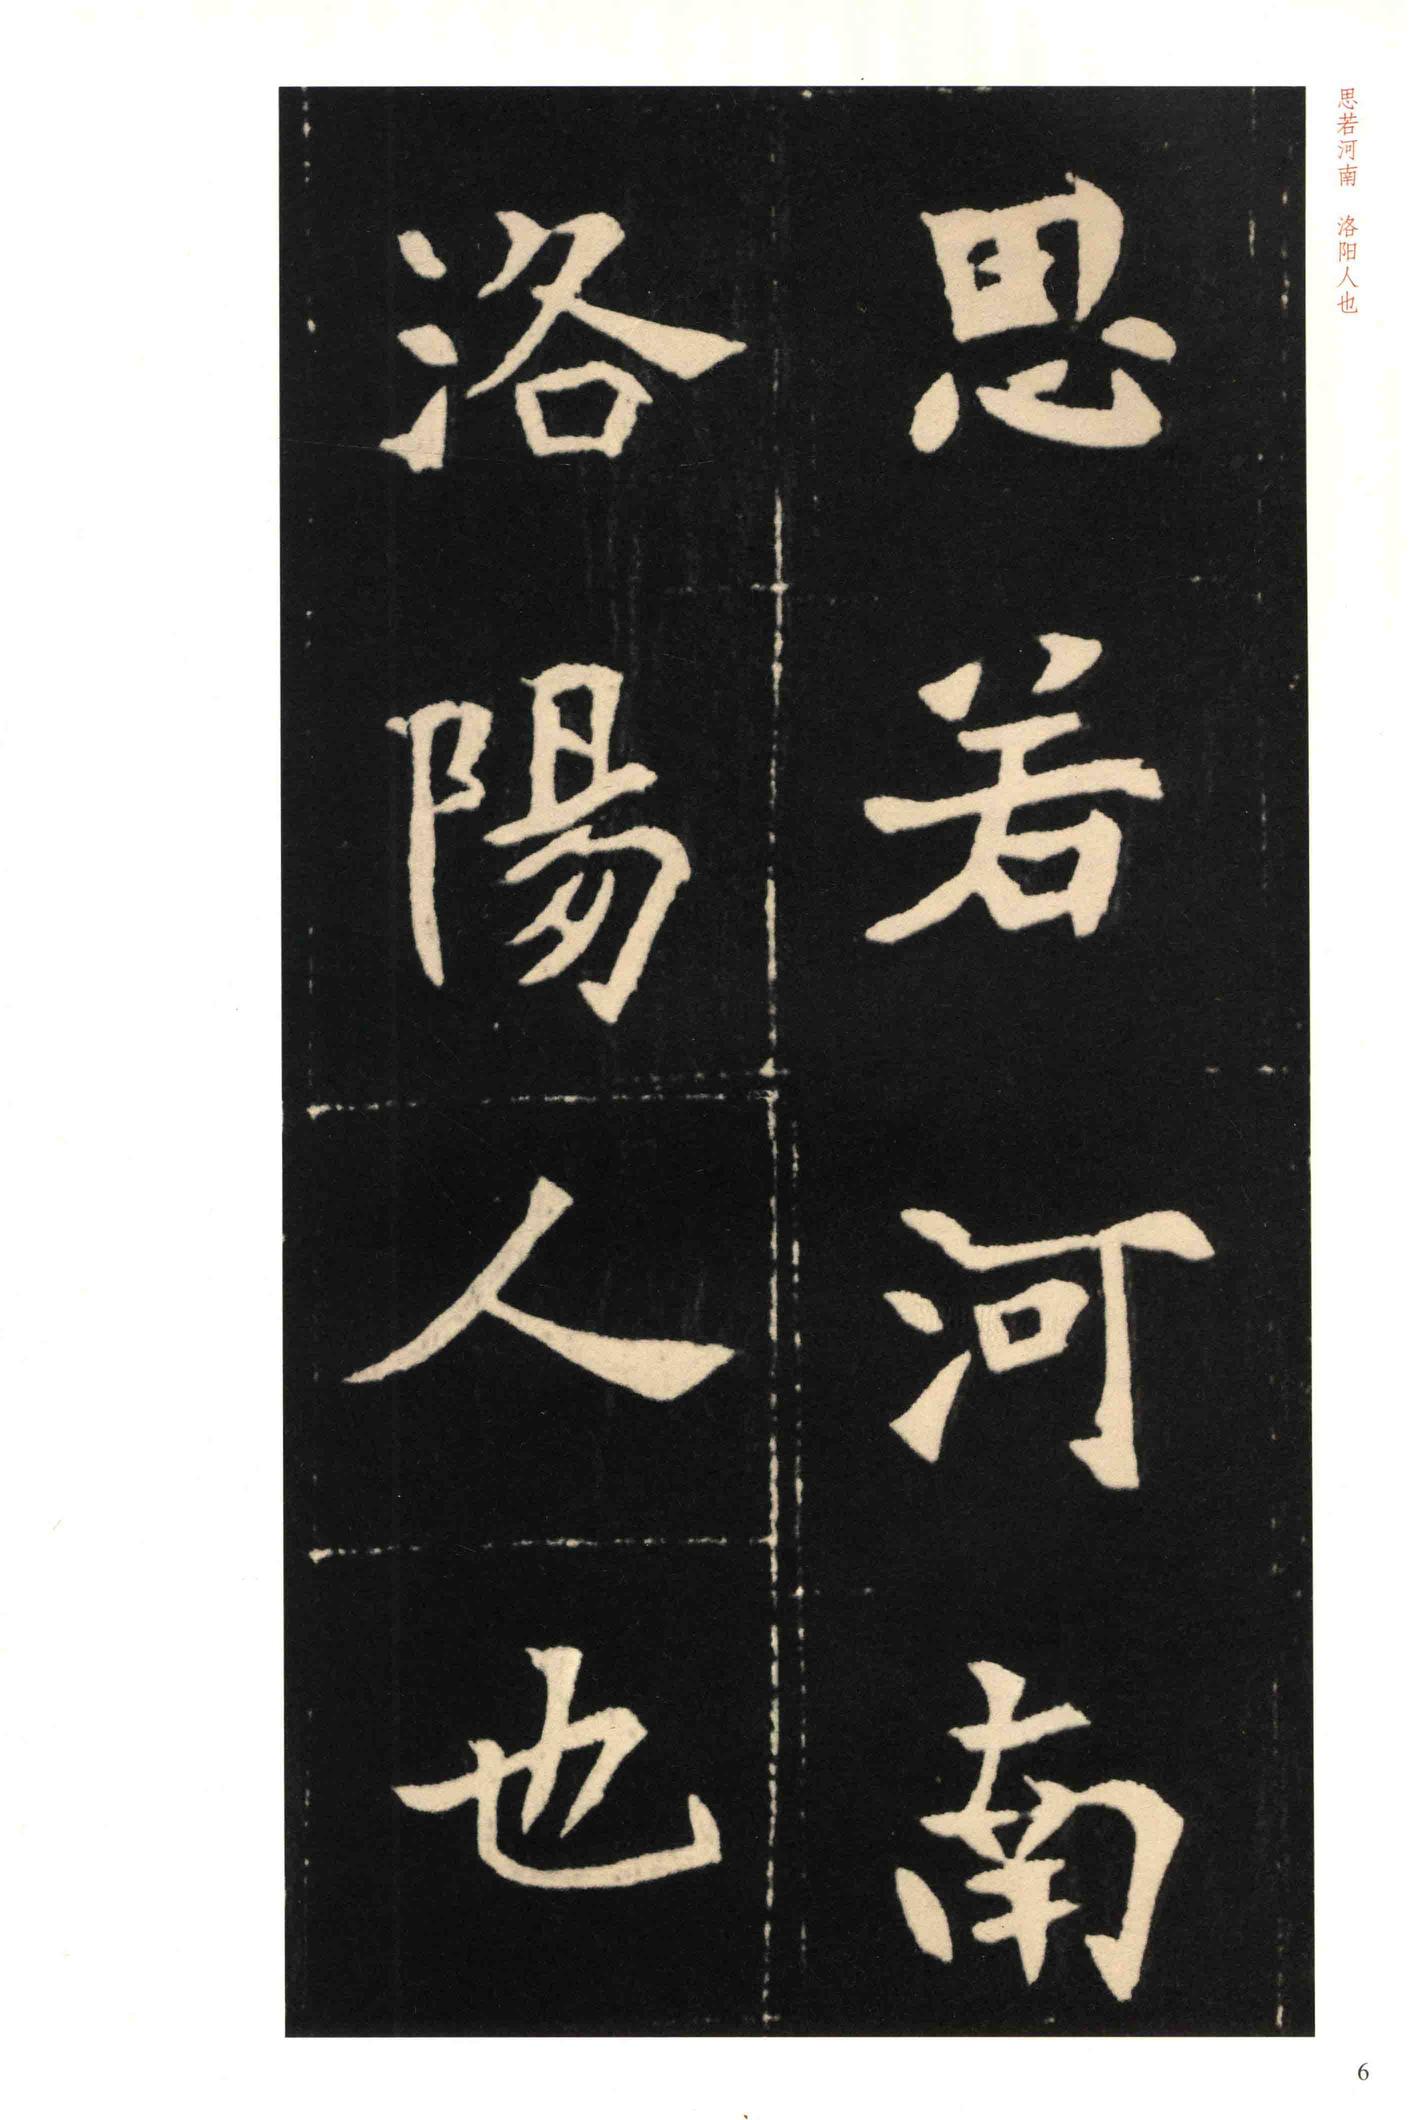 思若河南 洛阳人也
思若河南
洛陽人也
6